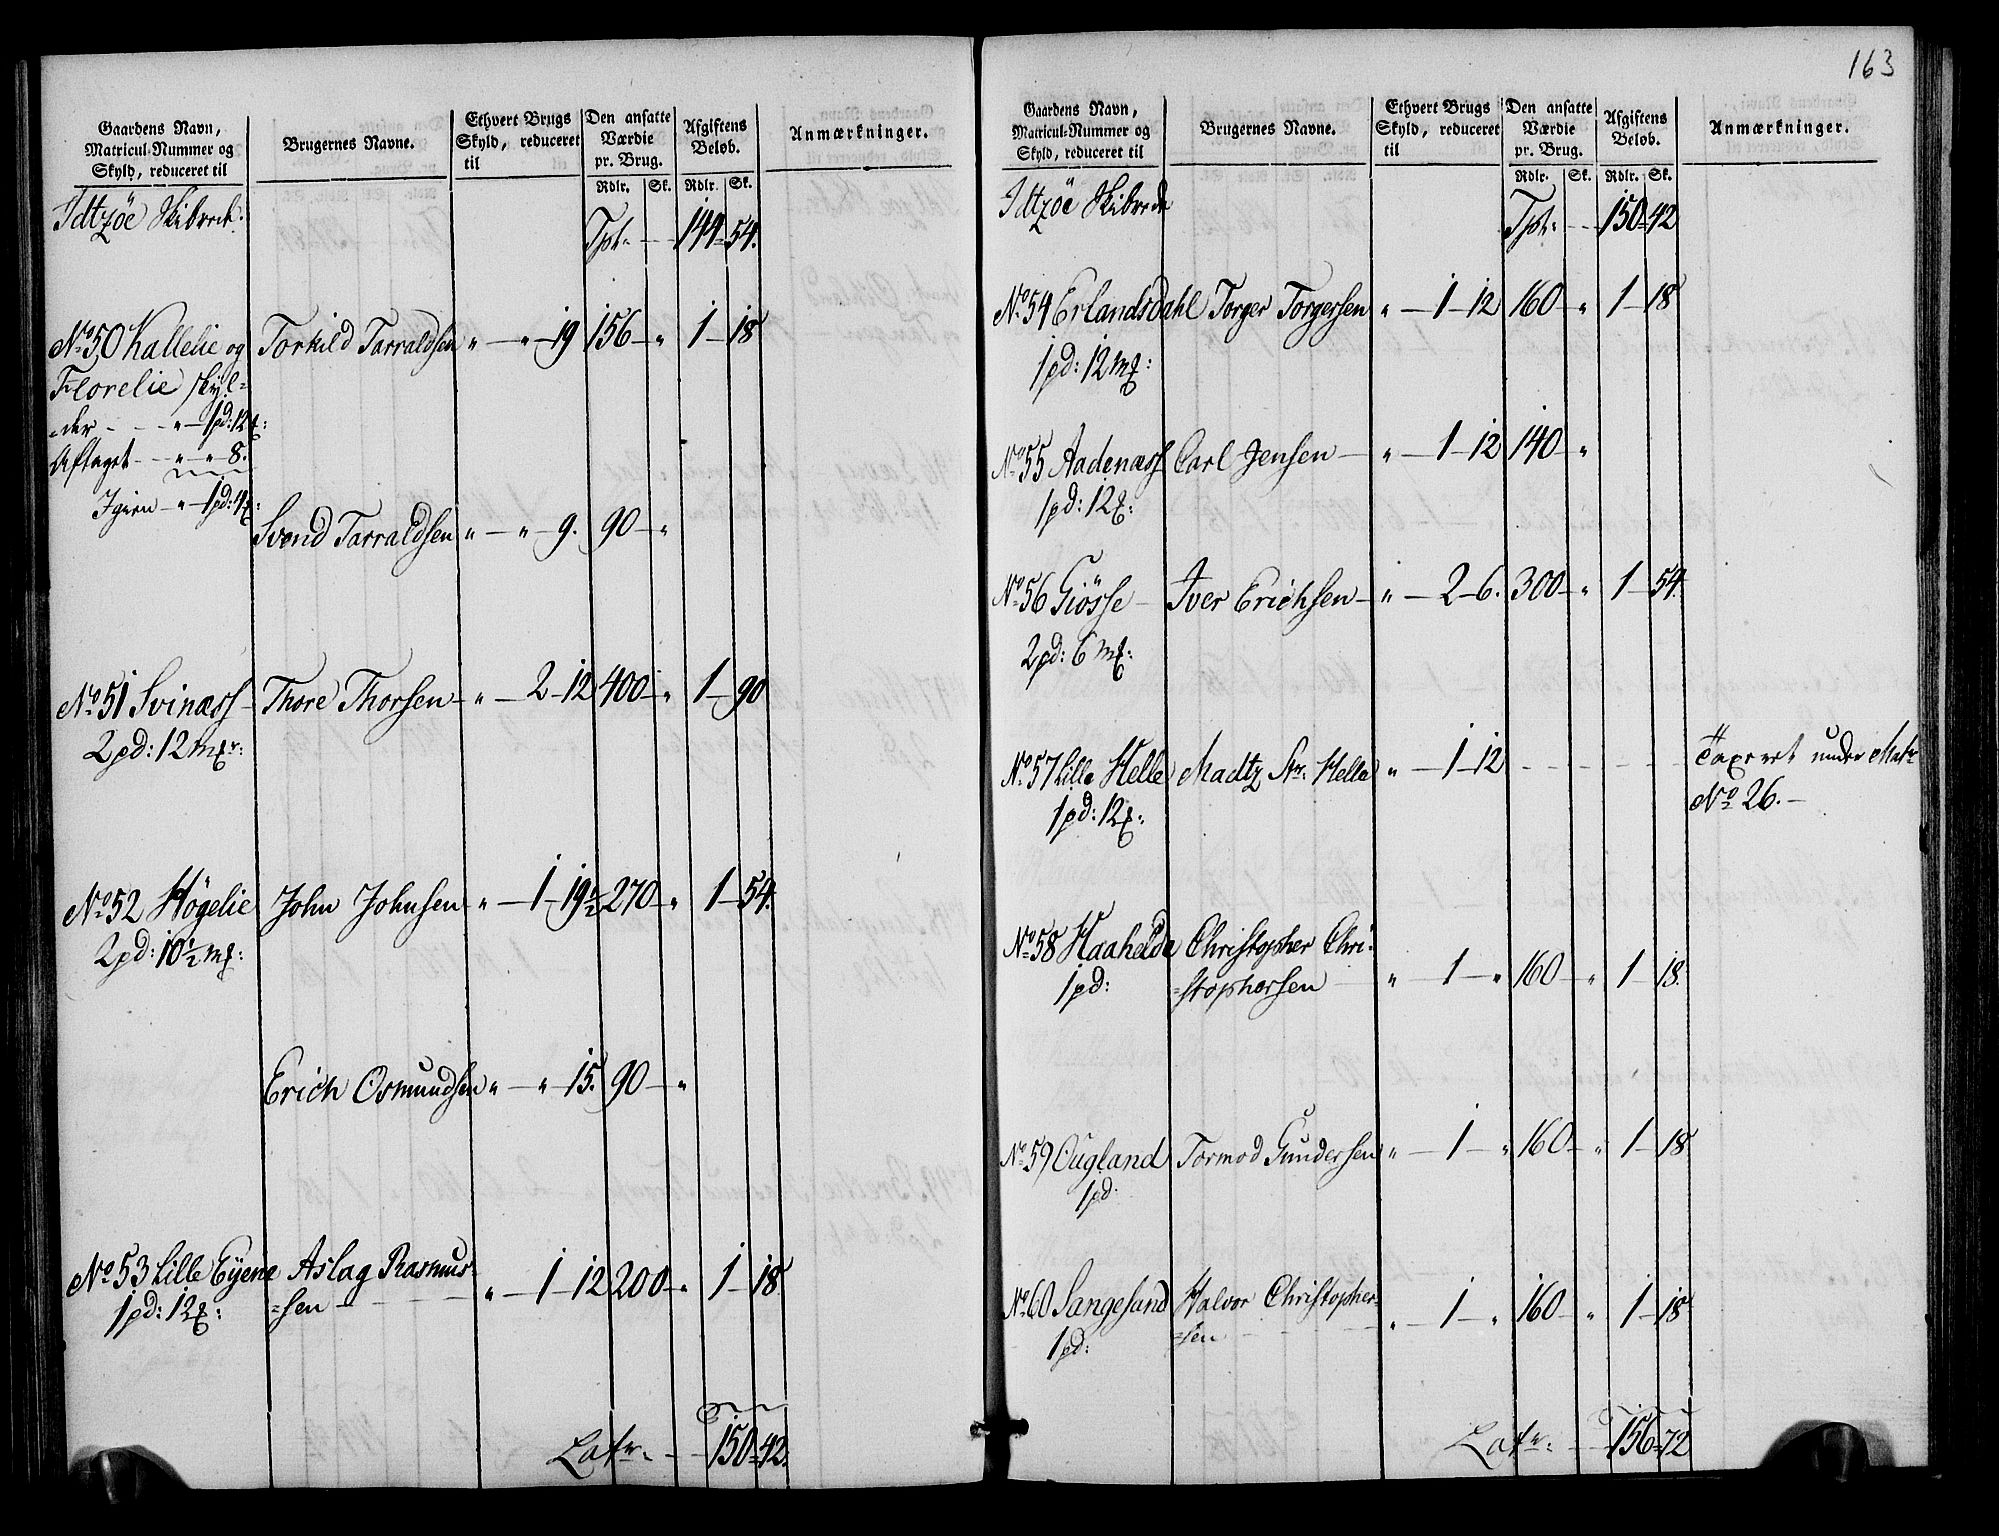 Gaardens Navn,
Matricul-Nummer og
Skyld, reduceret til
Brugernes Navne.
Ethvert Brugs
Skyld, reduceret
til
Den ansatte
Værdie
pr. Brug.
Rdlr. Sk.
Afgiftens
Beløb.
Rdlr. Sk.
Anmærkninger.
Idtzöe Skibred: Tpt: 144 54.
No 50 Kallelie og Torkild Tarraldsen " - " - 19 156 - " 1 - 18
Florelie skyl-
-der - - - " - 1pd: 12
Aftaget - - " - " 8.
Igien - " - 1pd: 4
Svend Tarraldsen " - " - 9. 90 - "
No 51 Svinæss - Thore Thorsen - " - 2 - 12 400 - " 1 - 90
2pd: 12 mk:
No 52 Högelie John Johnsen - " - 1 - 19½ 270 - " 1 - 54.
2pd: 10½ mk:
Erich Osmundsen " - " 15. 90 - "
No 53 Lille Eyene Aslag Rasmus-
1pd: 12 =sen - " - 1 - 12 200 - " 1 - 18
Latr: - - 150 - 42.
163
Gaardens Navn,
Matricul-Nummer og
Skyld, reduceret til
Brugernes Navne.
Ethvert Brugs
Skyld, reduceret
til
Den ansatte
Værdie
pr. Brug.
Rdlr. Sk.
Afgiftens
Beløb.
Rdlr. Sk.
Anmærkninger.
Idtzöe Skibrede Tpt: - - 150 - 42
No 54 Erlandsdahl Torger Torgersen " - 1 - 12 160 - " 1 - 18
1pd: 12 mk:
No 55 Aadenæss Carl Jensen - " - 1 - 12 140 - "
1pd: 12
No 56 Giösse - Iver Erichsen - " - 2 - 6. 300 - " 1 - 54.
2pd: 6 mk:
No 57 Lille Helle Madtz Str. Helle " - 1 - 12 - - - - - Taxeret under Matr
1pd: 12 No 26. -
No 58 Haahelde Christopher Chri-
1pd: =stophersen - " - 1 - " 160 - " 1 - 18.
No 59 Ougland Tormod Gundersen " - 1 - " 160 - " 1 - 18
1pd:
No 60 Sangesand Halvor Christopher-
1pd: =sen - - - " - 1 - " 160 - " 1 - 18
Latr: - - 156 - 72